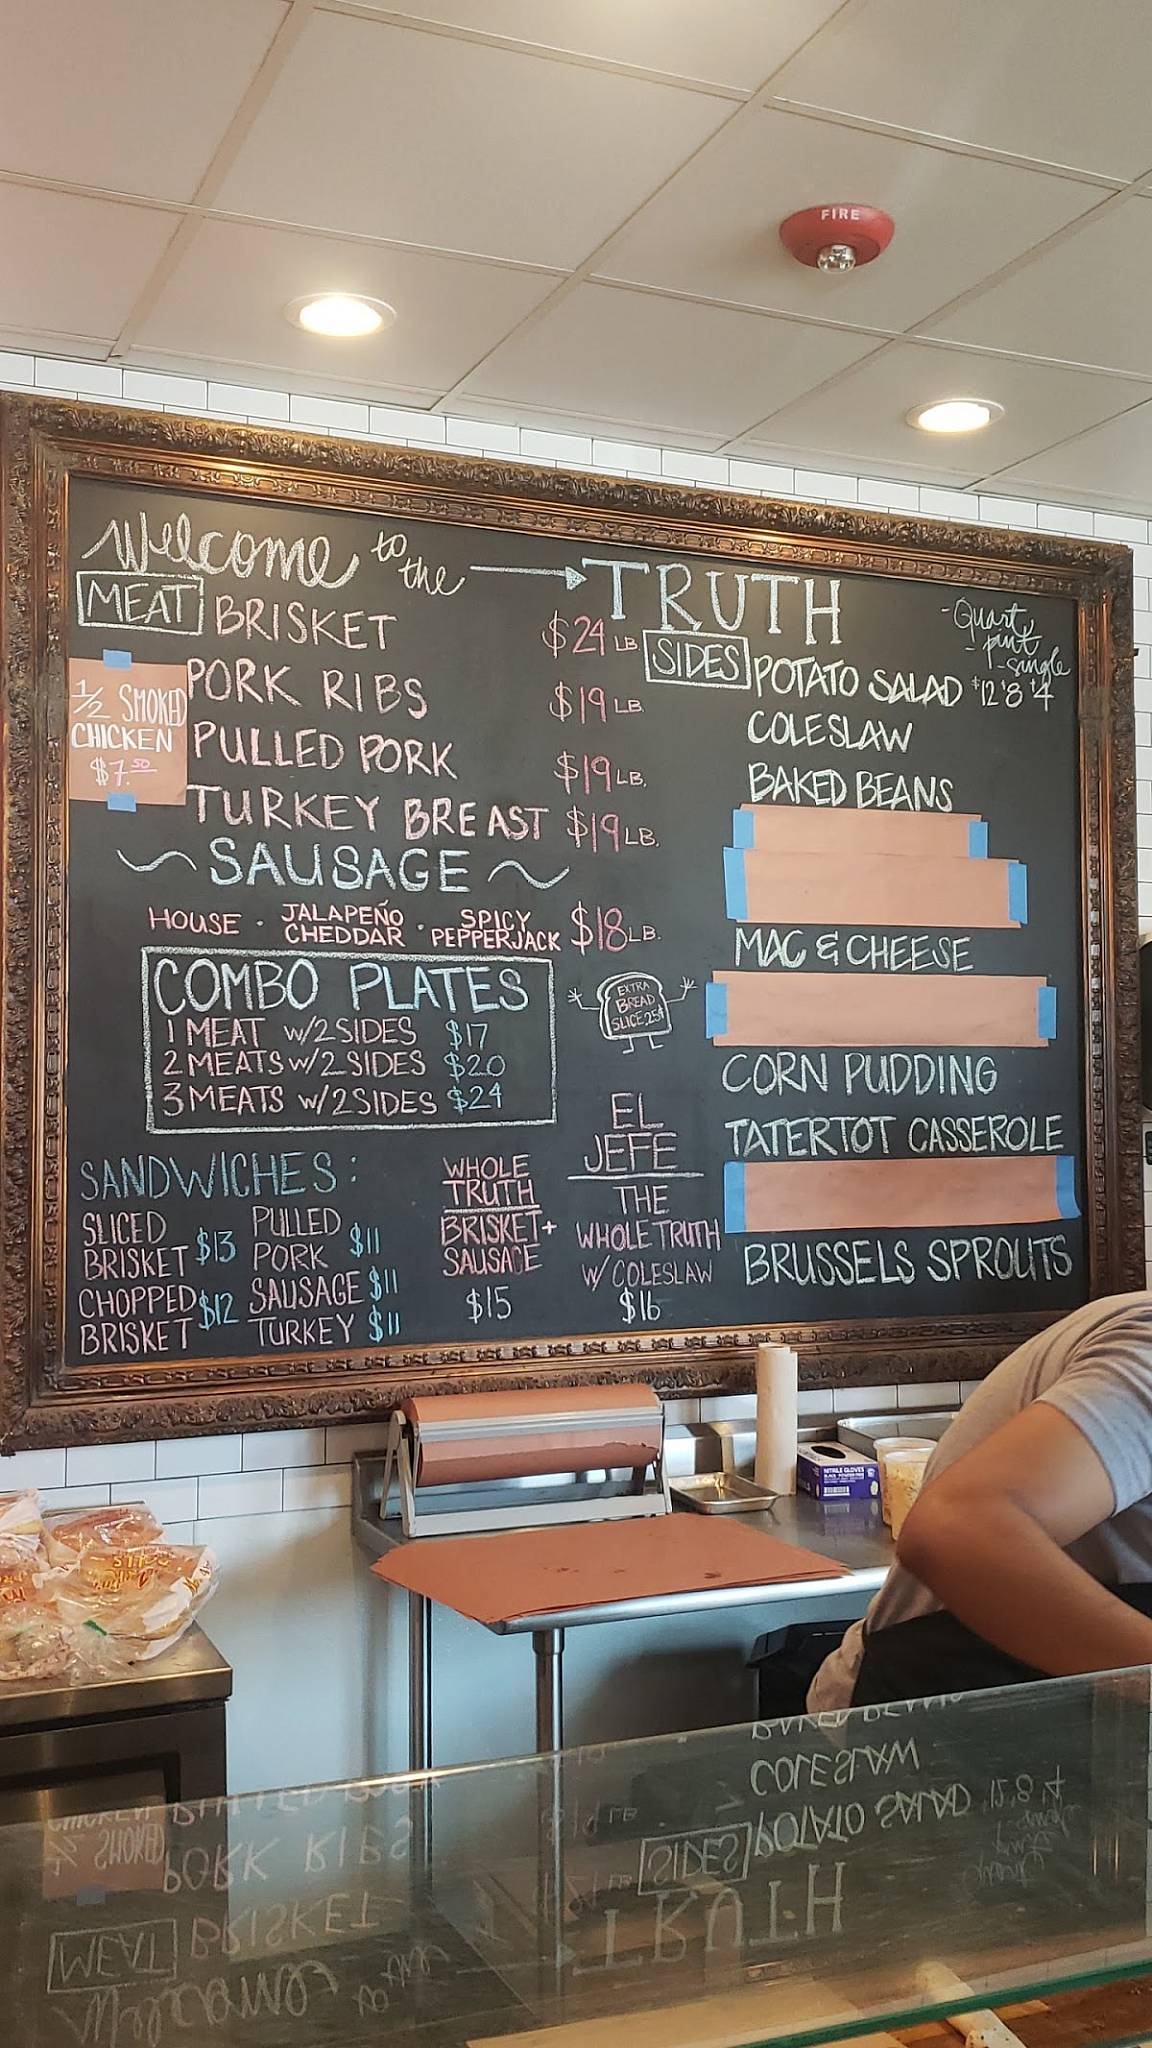 FIRE
Welcome to the TRUTH
MEAT
BRISKET $24 LB
PORK RIBS $19 LB.
PULLED PORK $19 LB.
TURKEY BREAST $19 LB.
1/2 SMOKED
CHICKEN
$7.50
~ SAUSAGE ~
HOUSE · JALAPEÑO CHEDDAR · SPICY PEPPERJACK $18 LB.
COMBO PLATES
1 MEAT W/2 SIDES $17
2 MEATS W/2 SIDES $20
3 MEATS W/2 SIDES $24
EXTRA
BREAD
SLICE 25¢
SANDWICHES:
SLICED BRISKET $13
CHOPPED BRISKET $12
PULLED PORK $11
SAUSAGE $11
TURKEY $11
WHOLE
TRUTH
BRISKET+
SAUSAGE
$15
EL
JEFE
THE
WHOLE TRUTH
W/ COLESLAW
$16
- Quart
- pint
- single
SIDES
POTATO SALAD $12 $8 $4
COLESLAW
BAKED BEANS
MAC & CHEESE
CORN PUDDING
TATERTOT CASSEROLE
BRUSSELS SPROUTS
NITRILE GLOVES